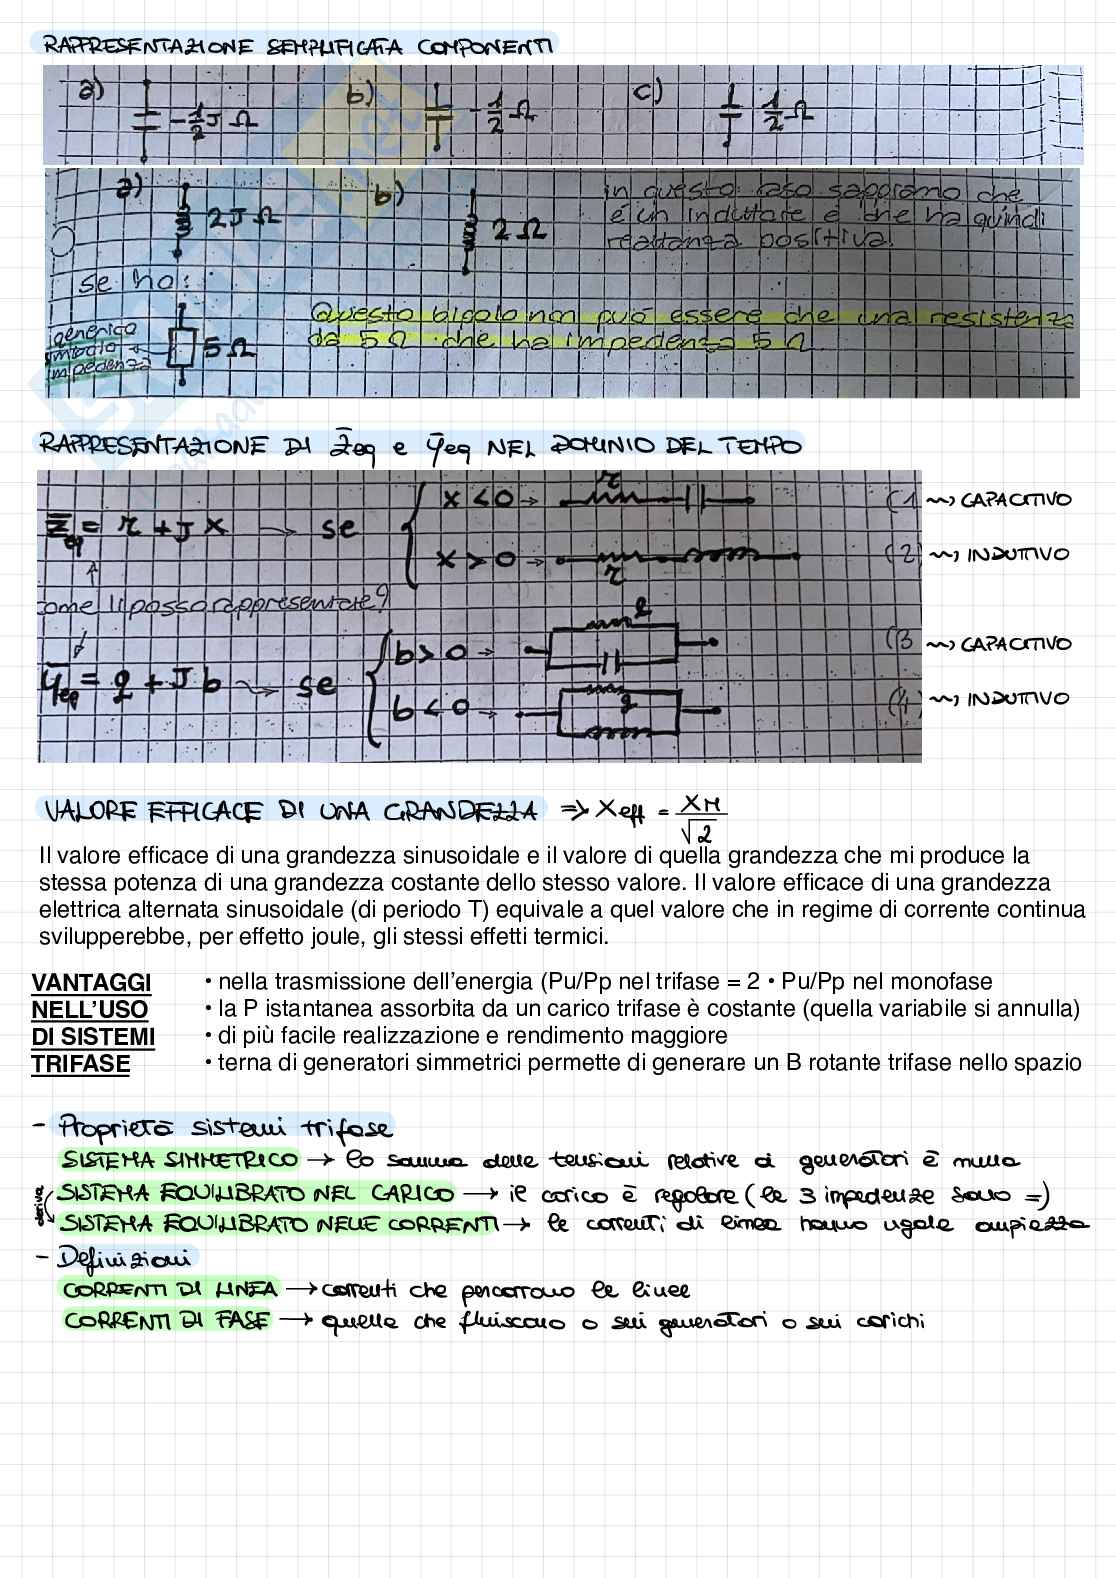 RAPPRESENTAZIONE SEMPLIFICATA COMPONENTI
a) -1/2 J Ω b) -1/2 Ω c) 1/2 Ω
a) 2J Ω b) 2 Ω in questo caso sappiamo che
è un induttore e che ha quindi
reattanza positiva.
se ho:
generico
simbolo
impedenza
5 Ω
Questo bipolo non può essere che una resistenza
da 5 Ω che ha impedenza 5 Ω
RAPPRESENTAZIONE DI Z̄eq e Ȳeq NEL DOMINIO DEL TEMPO
Z̄eq = r + J x → se
x < 0 → r (1 ⇝ CAPACITIVO
x > 0 → r (2) ⇝ INDUTTIVO
come li posso rappresentare?
Ȳeq = g + J b → se
b > 0 → g (3 ⇝ CAPACITIVO
b < 0 → g (4) ⇝ INDUTTIVO
VALORE EFFICACE DI UNA GRANDEZZA ⇒ Xeff = XM/√2
Il valore efficace di una grandezza sinusoidale e il valore di quella grandezza che mi produce la
stessa potenza di una grandezza costante dello stesso valore. Il valore efficace di una grandezza
elettrica alternata sinusoidale (di periodo T) equivale a quel valore che in regime di corrente continua
svilupperebbe, per effetto joule, gli stessi effetti termici.
VANTAGGI
NELL'USO
DI SISTEMI
TRIFASE
• nella trasmissione dell'energia (Pu/Pp nel trifase = 2 • Pu/Pp nel monofase
• la P istantanea assorbita da un carico trifase è costante (quella variabile si annulla)
• di più facile realizzazione e rendimento maggiore
• terna di generatori simmetrici permette di generare un B rotante trifase nello spazio
- Proprietà sistemi trifase
SISTEMA SIMMETRICO → la somma delle tensioni relative ai generatori è nulla
SISTEMA EQUILIBRATO NEL CARICO → il carico è regolare (le 3 impedenze sono =)
deriva
SISTEMA EQUILIBRATO NELLE CORRENTI → le correnti di linea hanno uguale ampiezza
- Definizioni
CORRENTI DI LINEA → correnti che percorrono le linee
CORRENTI DI FASE → quelle che fluiscono o sui generatori o sui carichi